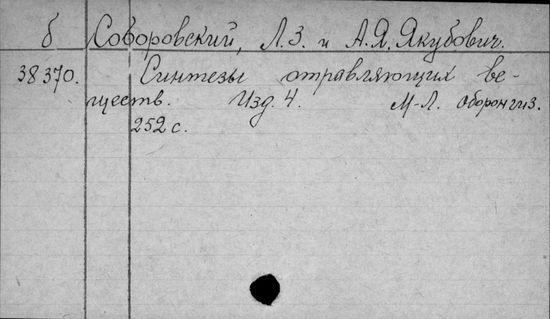 б Соборовский, Л.З. и А.Я. Якубович.
38370. Синтезы отравляющих ве-
ществ. Изд. 4. М-Л. Оборонгиз.
252 с.